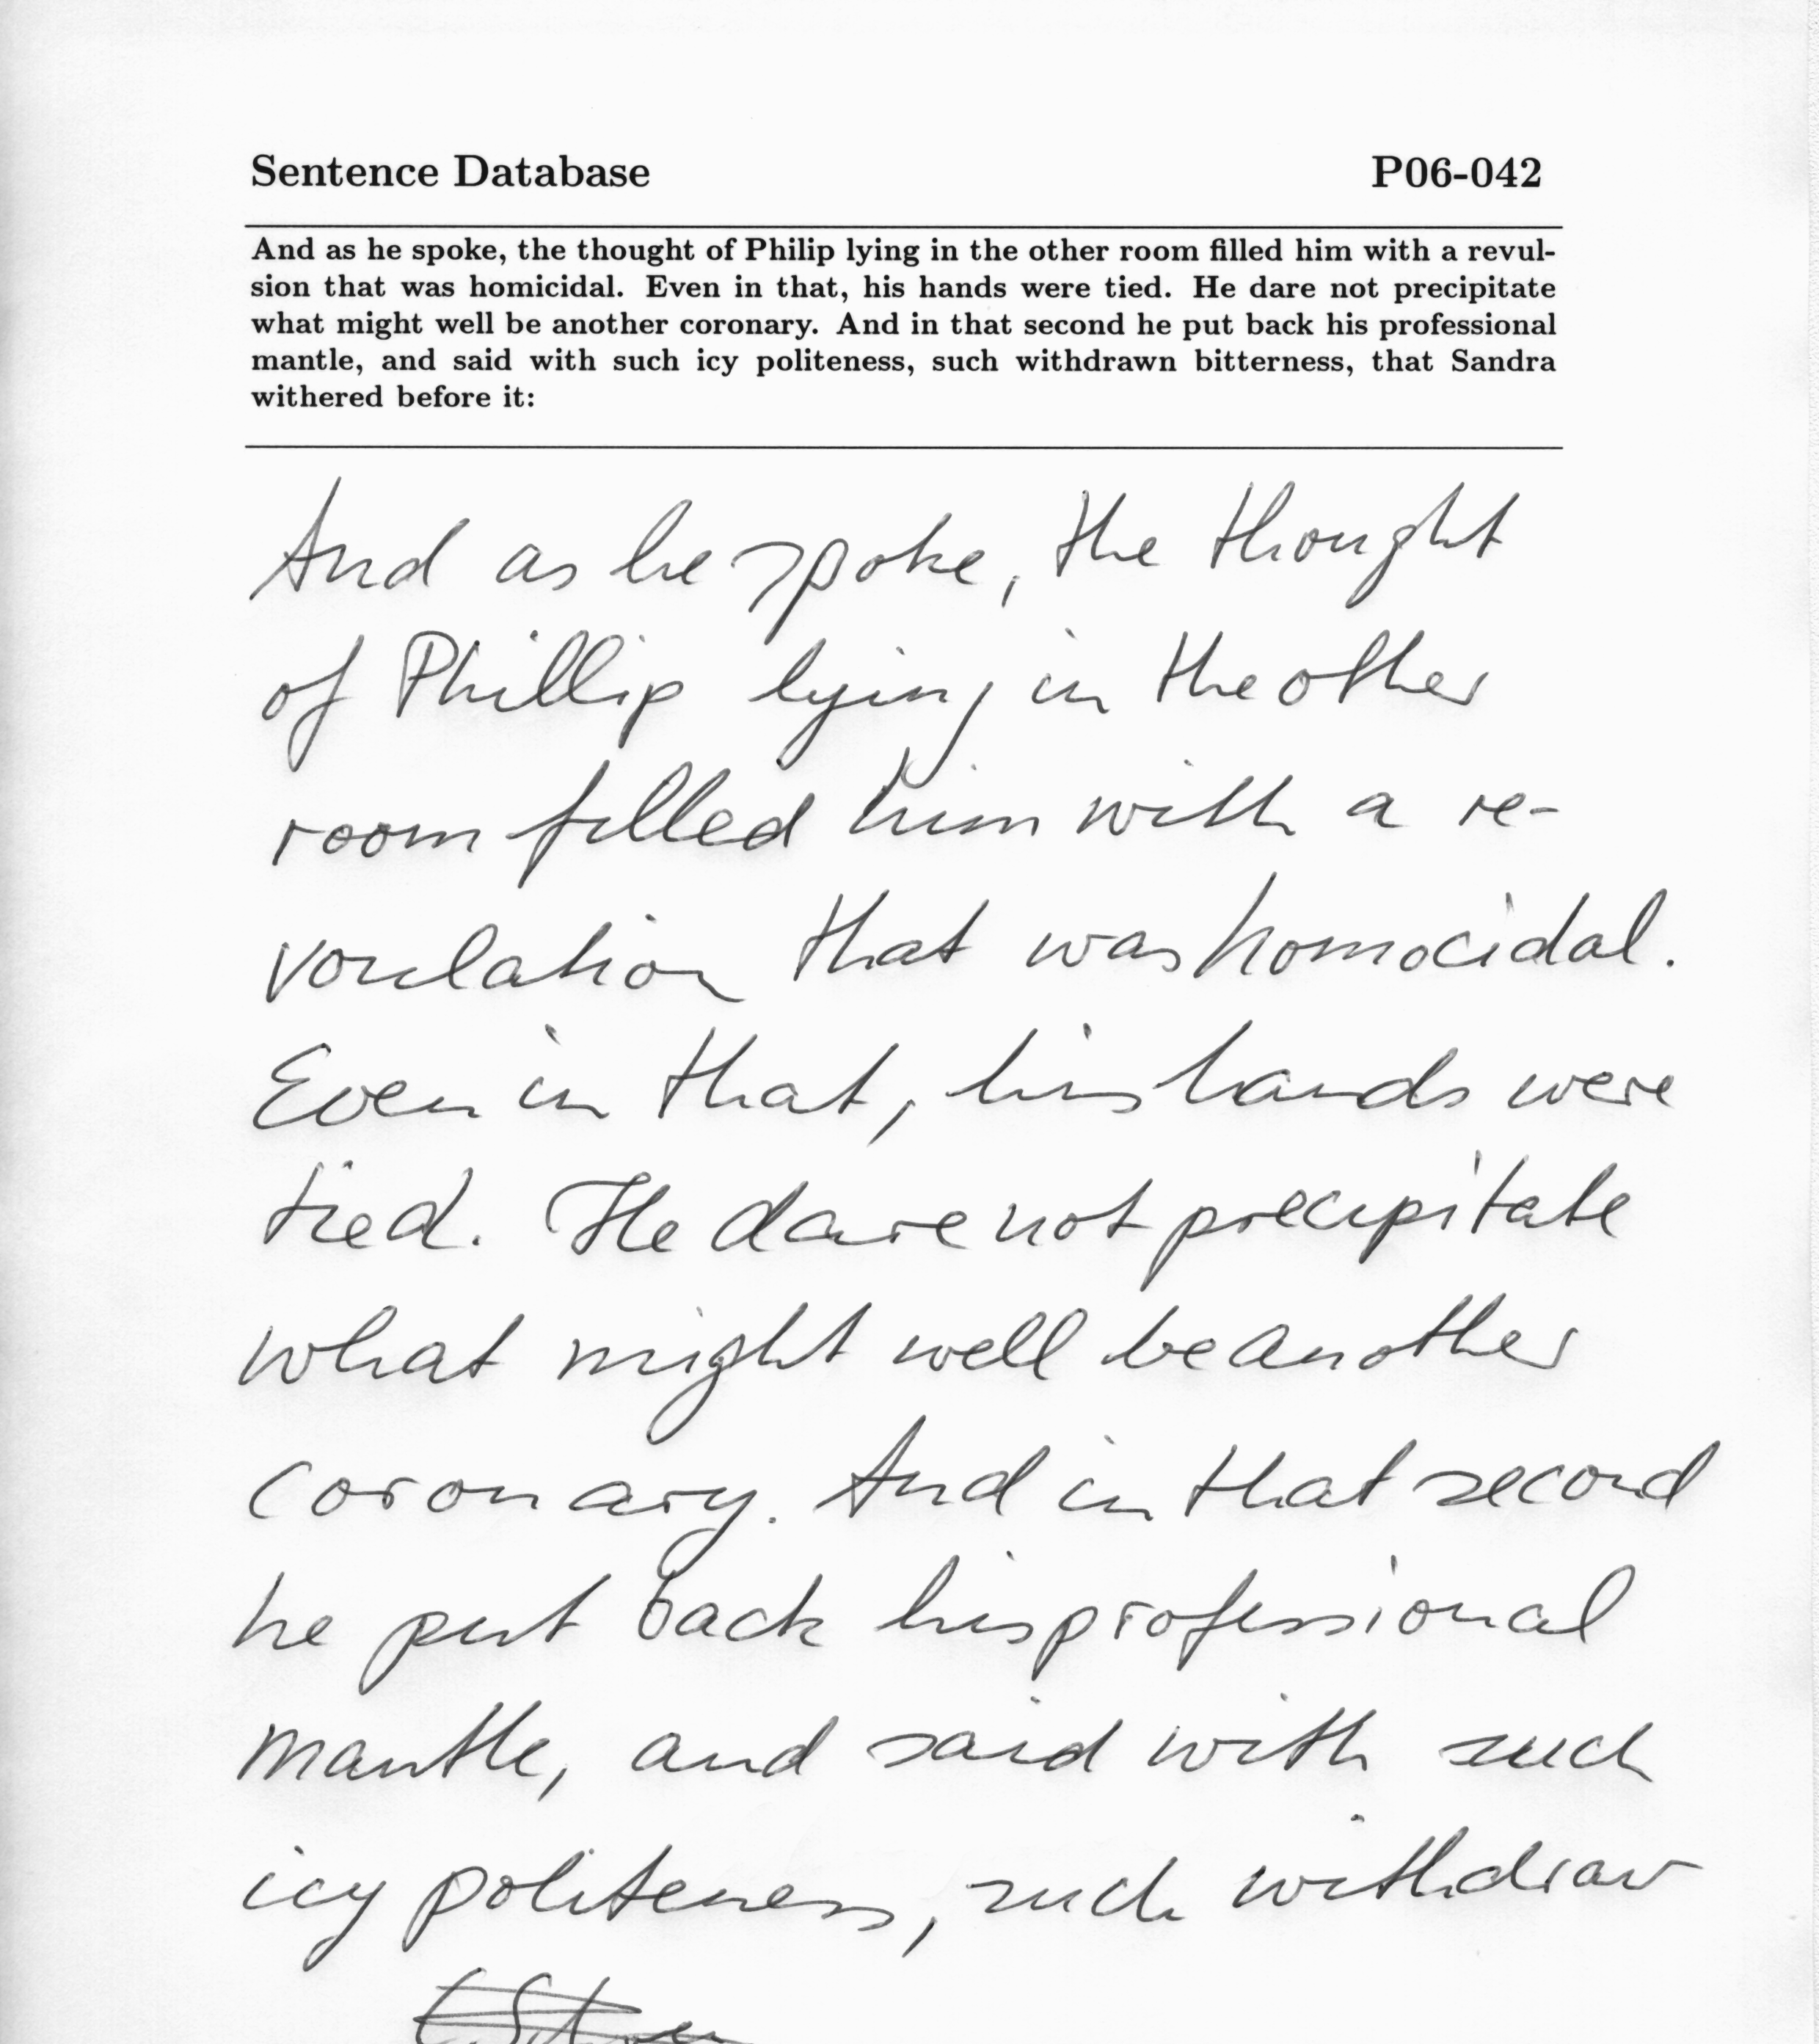 Sentence Database P06-042
And as he spoke, the thought of Philip lying in the other room filled him with a revul-
sion that was homicidal. Even in that, his hands were tied. He dare not precipitate
what might well be another coronary. And in that second he put back his professional
mantle, and said with such icy politeness, such withdrawn bitterness, that Sandra
withered before it:
And as he spoke, the thought
of Phillip lying in the other
room filled him with a re-
voulation that was homocidal.
Even in that, his hands were
tied. He dare not precipitate
what might well be another
coronary. And in that second
he put back his professional
mantle, and said with such
icy politeness, such withdraw